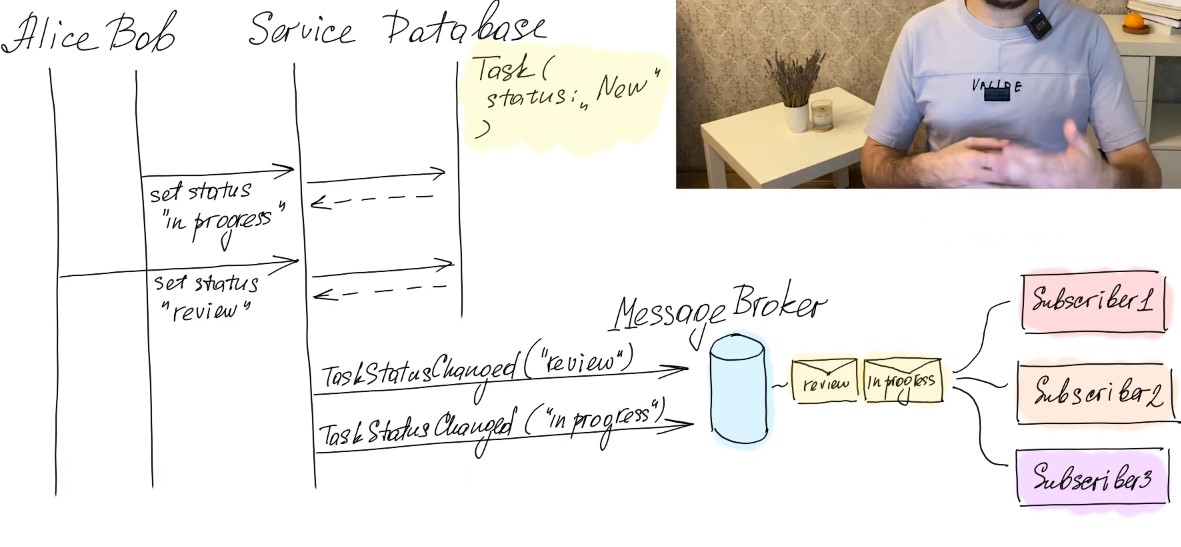 Alice Bob Service Database
Task(
status: „New"
)
set status
"in progress"
set status
"review"
Message Broker
TaskStatusChanged ("review")
TaskStatusChanged ("in progress")
review
in progress
Subscriber1
Subscriber2
Subscriber3